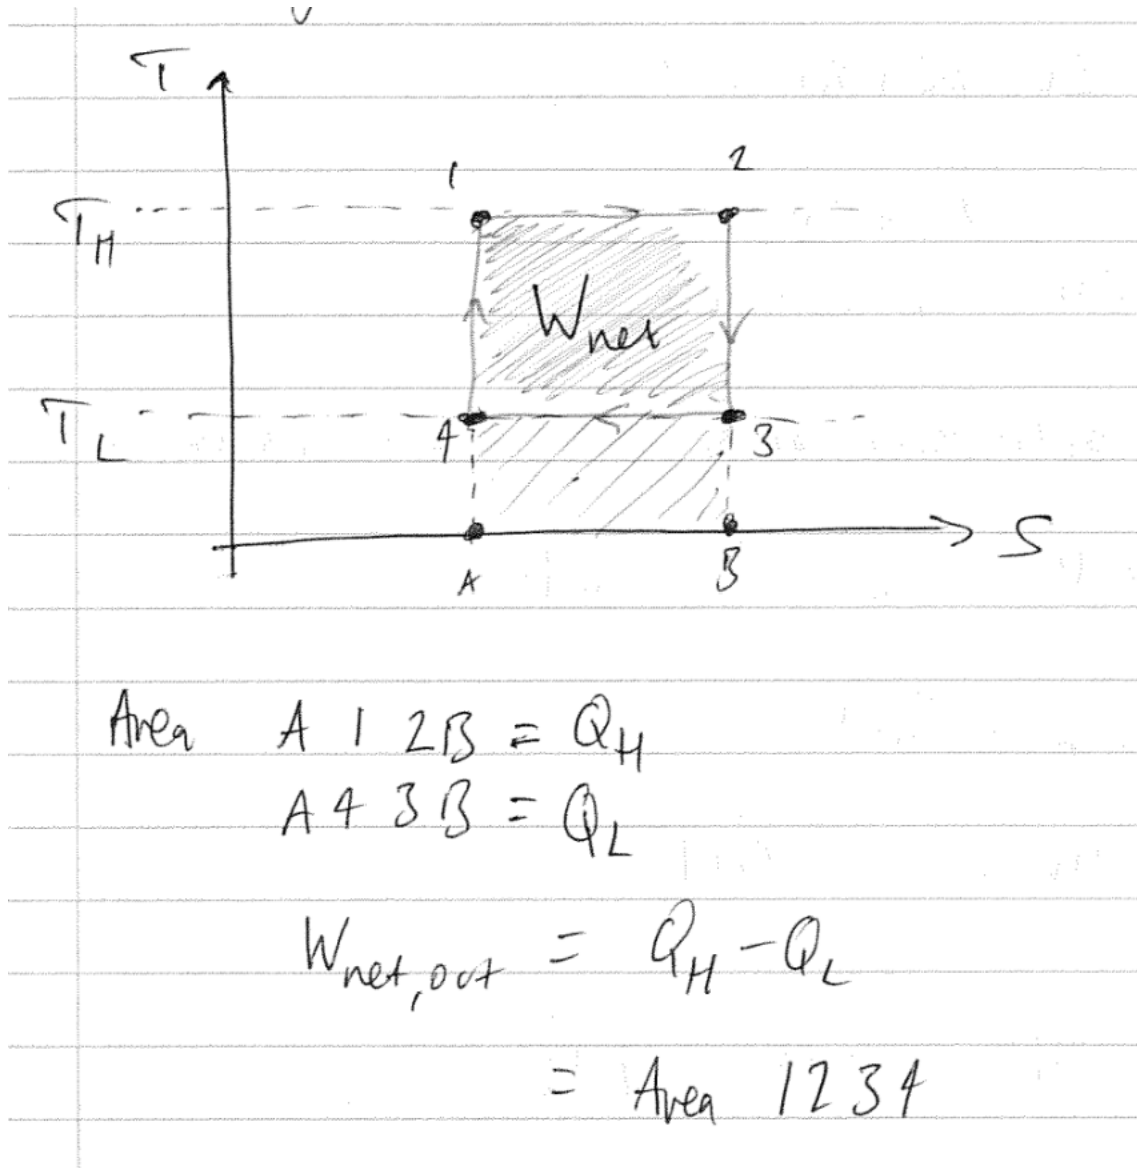 T
1 2
T_H
W_net
T_L
4 3
S
A B
Area A 1 2 B = Q_H
A 4 3 B = Q_L
W_net,out = Q_H - Q_L
= Area 1234